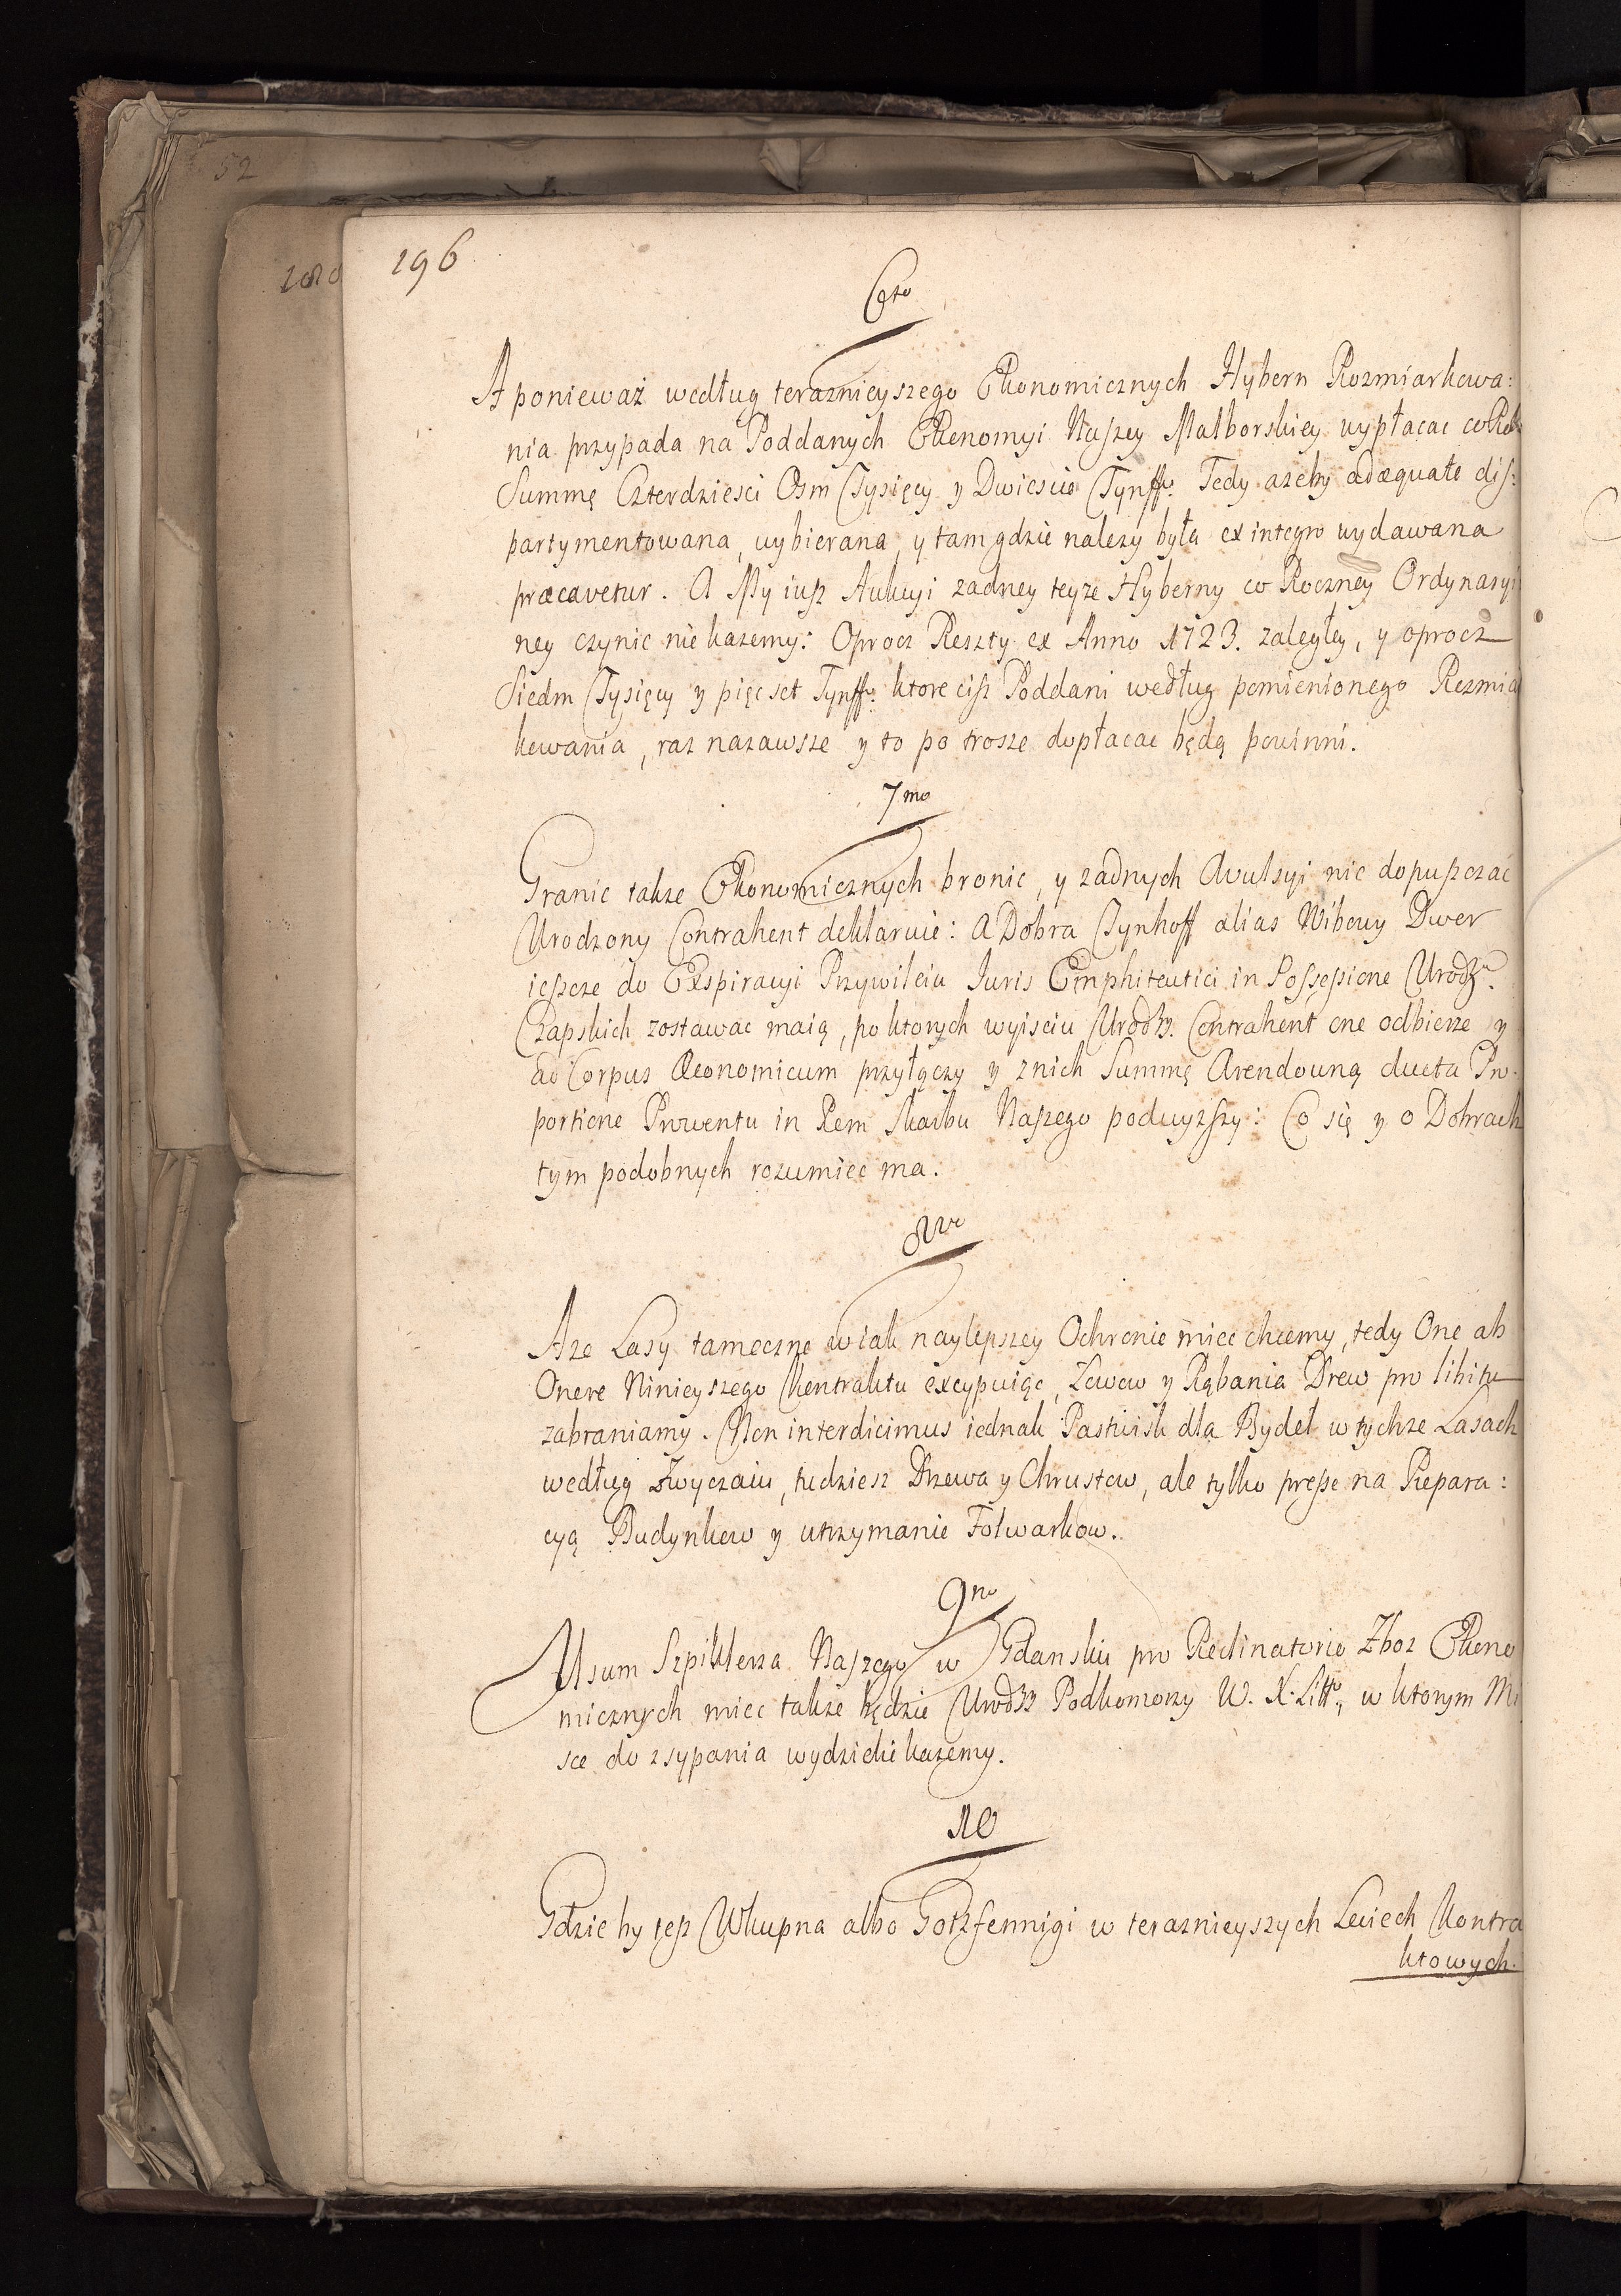 52
196
6to
A ponieważ według teraznieyszego Ekonomicznych Hybern Rozmiarkowa:
nia przypada na Poddanych Ekonomyi Naszey Malborskiey wypłacac coRok
Summę Czterdziesci Osm Tysięcy y Dwiescie Tynff: Tedy azeby adæquate dis:
partymentowana, wybierana, y tam gdzie nalezy była ex integro wydawana
præcavetur. A My iusz Aukcyi zadney teyze Hyberny co Roczney Ordynaryi
ney czynic nie kazemy: Oprocz Reszty ex Anno 1723. zaległey, y oprocz
Siedm Tysięcy y pięcset Tynff: ktore cisz Poddani według pomienionego Rozmia
kowania, raz nazawsze y to po trosze dopłacac będą powinni.
7mo
Granic takze Ekonomicznych bronic, y zadnych Avulsyi nie dopuszczać
Urodzony Contrahent deklaruie: A Dobra Tynhoff alias Nibowy Dwor
ieszcze do Exspiracyi Przywileiu Juris Emphiteutici in Possessione Urodz:
Czapskich zostawac maią, po ktorych wyisciu Urodz. Contrahent one odbierze y
ad Corpus Œconomicum przyłączy y z nich Summę Arendowną ducta Pro
portione Prowentu in Rem Skarbu Naszego podwyzszy: Co się y o Dobrach
tym podobnych rozumiec ma.
8vo
A ze Lasy tameczne w iak naylepszey Ochronie miec chcemy, tedy One ab
Onere Ninieyszego Kontraktu excypuiąc, Łowow y Rąbania Drew pro libitu
zabraniamy. Non interdicimus iednak Pastwisk dla Bydeł w tychze Lasach
według Zwyczaiu, tudziesz Drzewa y Chrustow, ale tylko præse na Repara:
cyą Budynkow y utrzymanie Folwarkow.
9no
Usum Szpiklerza Naszego w Gdansku pro Reclinatorio Zboz Ekono
micznych miec takze będzie Urodz Podkomorzy W. X. Litt:, w ktorym Mi
sce do zsypania wydzielić kazemy.
10
Gdzie by tesz Wkupna albo Gotzfennigi w teraznieyszych Leciech Kontra
ktowych.